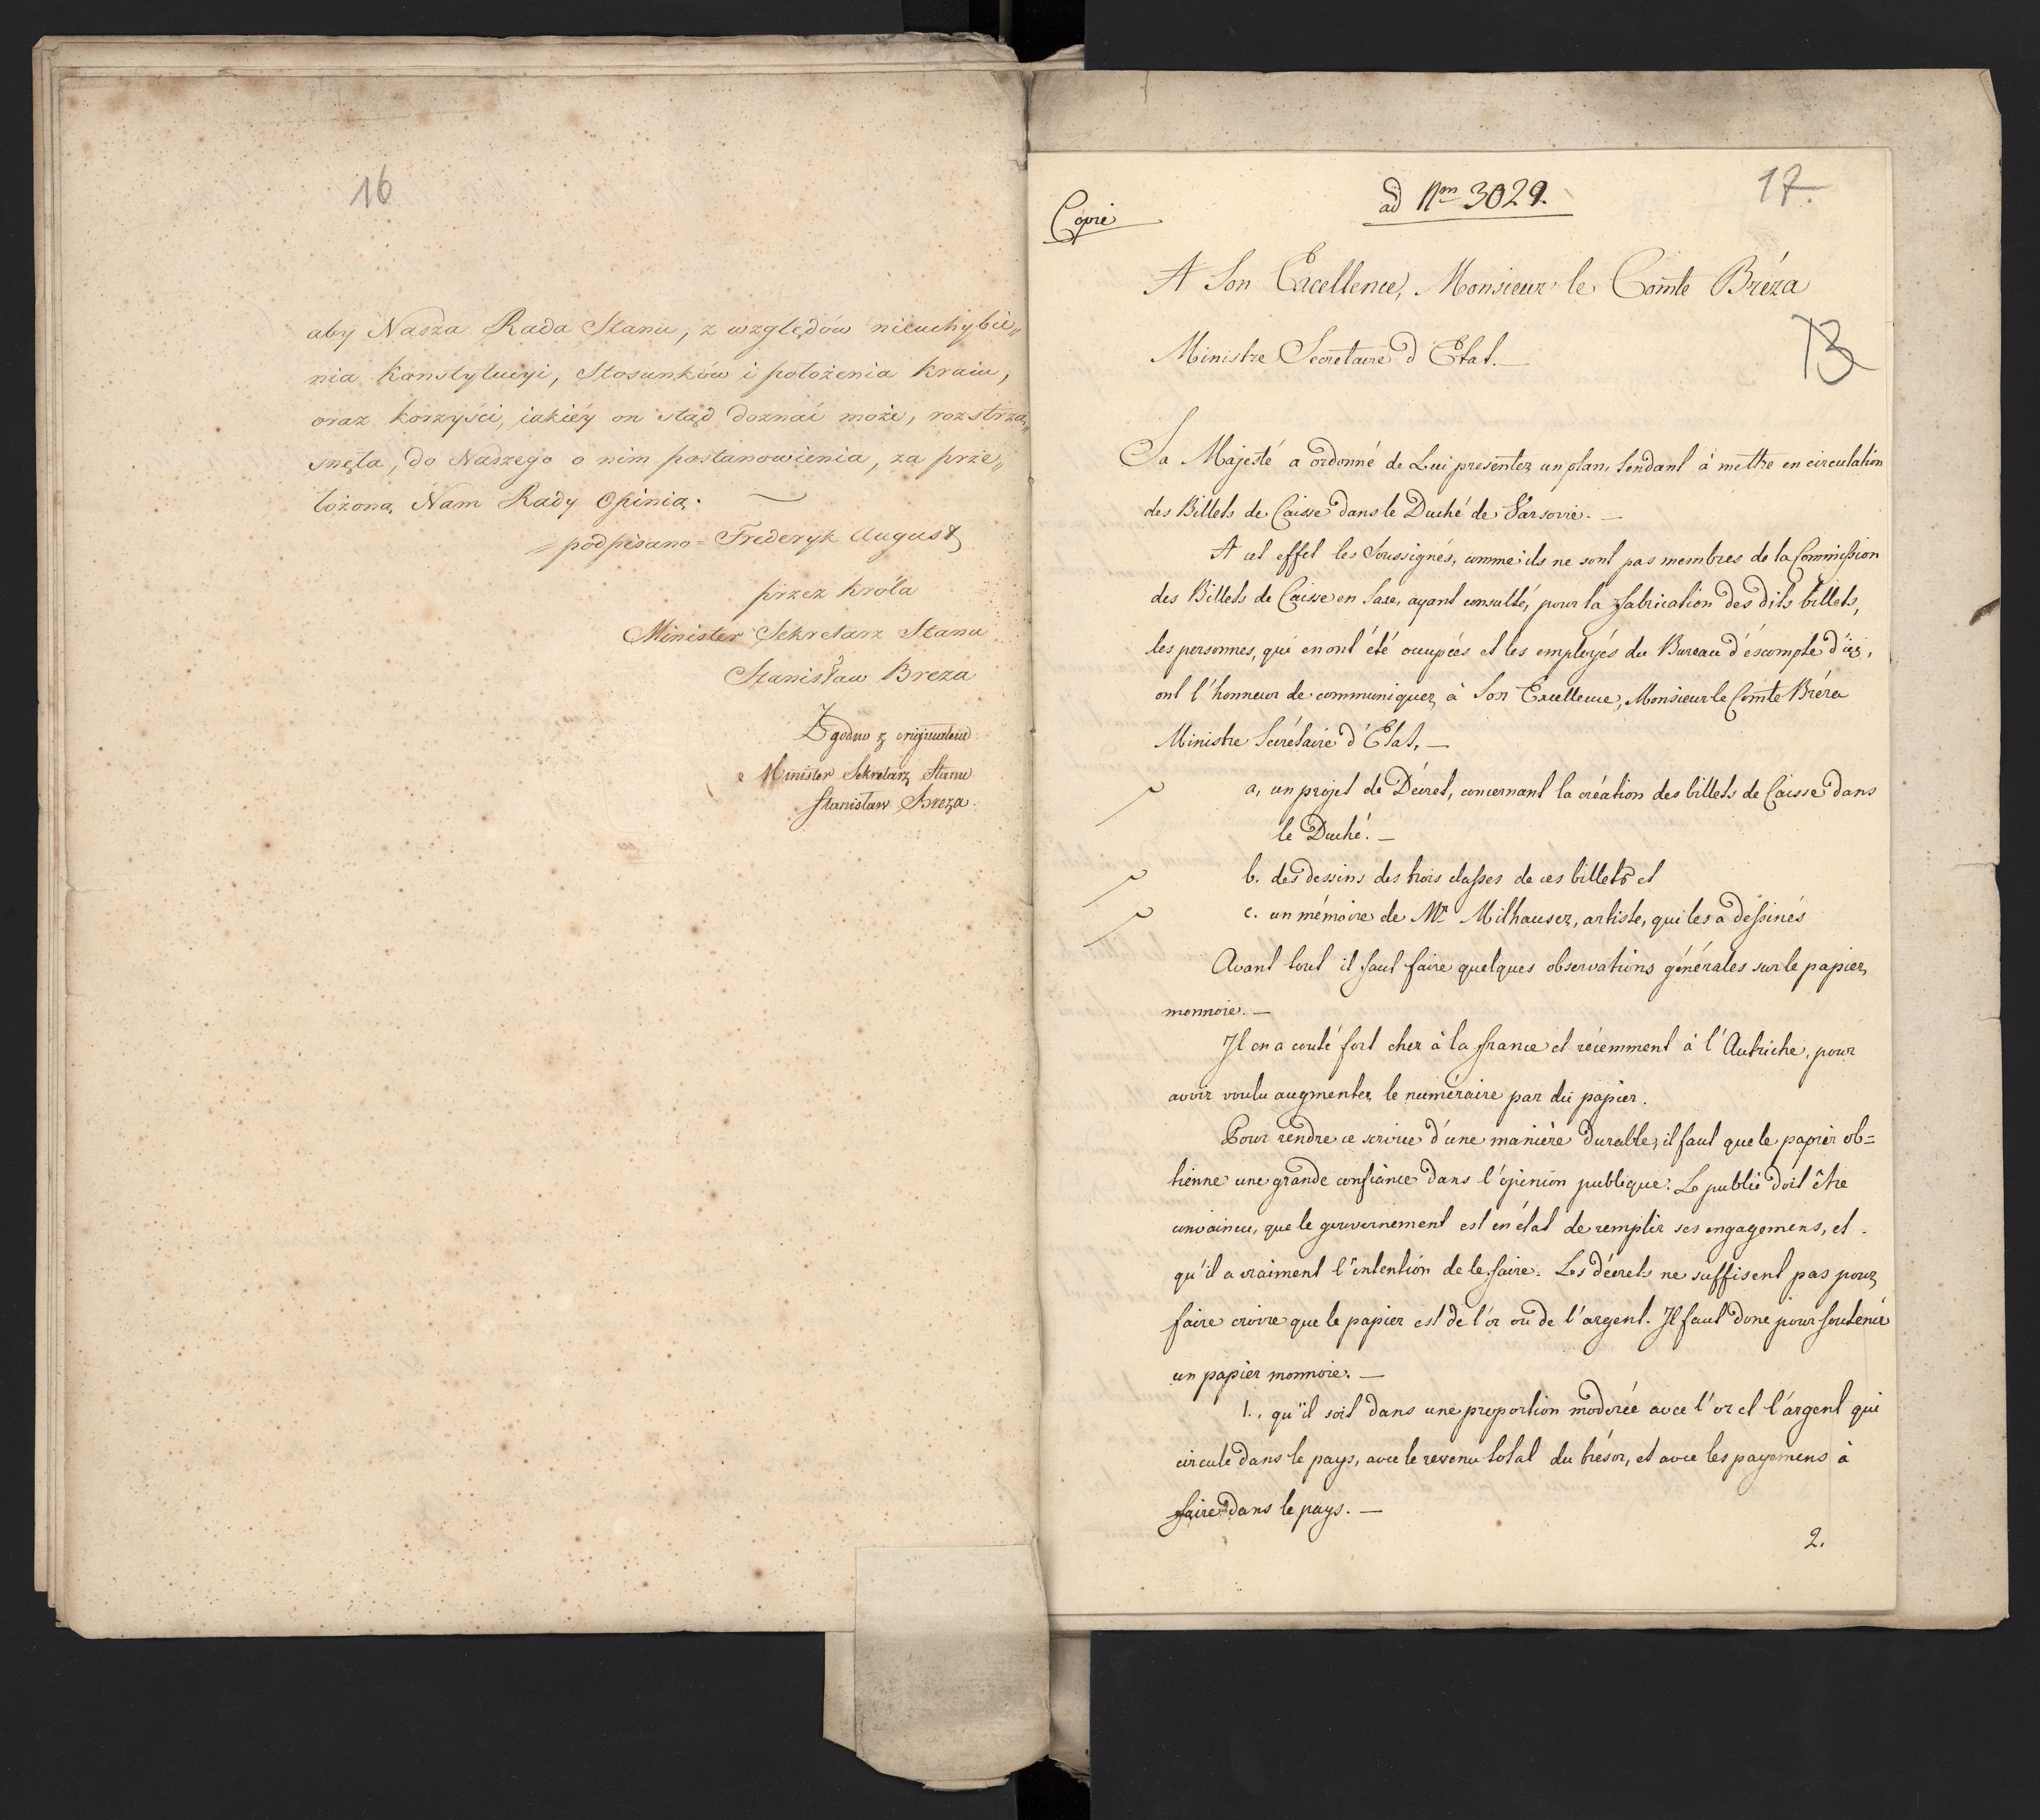 16
aby Nasza Rada Stanu, z względów nieuchybie„
nia Konstytucyi, Stosunków i położenia Kraiu,
oraz korzyści, iakiéy on stąd doznać może, rozstrzą„
snęła, do Naszego o nim postanowienia, za prze„
łożoną Nam Rady Opinią.
= podpisano = Frederyk August
przez Króla
Minister Sekretarz Stanu
Stanisław Breza
Zgodno z oryginałem
Minister Sekretarz Stanu
Stanisław Breza
17.
ad Nm 3029.
Copie
A Son Excellence, Monsieur le Comte Bréza
13
Ministre Secretaire d'Etat. —
Sa Majesté a ordonné de Lui presenter un plan, tendant à mettre en circulation
des Billets de Caisse dans le Duché de Varsovie. —
A cet effet les Soussignés, comme ils ne sont pas membres de la Commission
des Billets de Caisse en Saxe, ayant consulté, pour la fabrication des dits billets,
les personnes, qui en ont été occupées et les employés du Bureau d'éscompte d'ici,
ont l'honneur de communiquer à Son Excellence, Monsieur le Comte Bréza
Ministre Secrétaire d'État, —
a, un projet de Décret, concernant la création des billets de Caisse dans
le Duché. —
b. des dessins des trois classes de ces billets et
c. un mémoire de Mr Milhauser, artiste, qui les a dessinés
Avant tout il faut faire quelques observations générales sur le papier
monnoie. —
Il en a couté fort cher à la france et récemment à l'Autriche, pour
avoir voulu augmenter le numéraire par du papier.
Pour rendre ce service d'une manière durable, il faut que le papier ob=
tienne une grande confiance dans l'opinion publique. Le public doit être
convaincu, que le gouvernement est en état de remplir ses engagemens, et
qu'il a vraiment l'intention de le faire. Les décrets ne suffisent pas pour
faire croire que le papier est de l'or ou de l'argent. Il faut donc pour soutenir
un papier monnoie. —
1., qu'il soit dans une proportion modérée avec l'or et l'argent qui
circule dans le pays, avec le revenu total du trésor, et avec les payemens à
faire dans le pays. —
2.